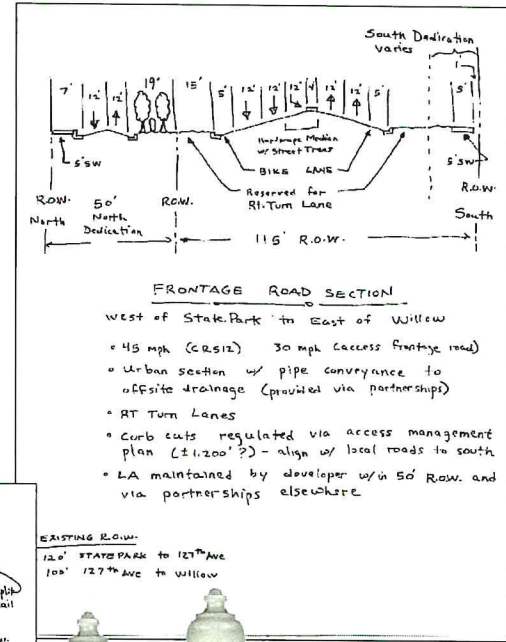 South Dedication
varies
7' 12' 12' 19' 15' 5' 12' 12' 12' 4' 12' 12' 5' 5'
Hardscape Median
w/ Street Trees
5' SW BIKE LANE 5' SW
Reserved for
Rt. Turn Lane
R.O.W. R.O.W. R.O.W.
North 50' South
North
Dedication
115' R.O.W.
FRONTAGE ROAD SECTION
West of State Park to East of Willow
• 45 mph (CR512) 30 mph (access frontage road)
• Urban section w/ pipe conveyance to
offsite drainage (provided via partnerships)
• RT Turn Lanes
• Curb cuts regulated via access management
plan (±1,200'?) - align w/ local roads to south
• LA maintained by developer w/in 50' R.O.W. and
via partnerships elsewhere
EXISTING R.O.W.
120' STATE PARK to 127th Ave
100' 127th Ave to Willow